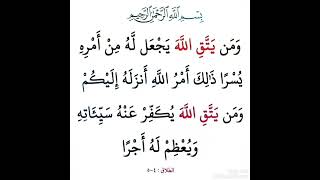 بِسْمِ اللَّهِ الرَّحْمَٰنِ الرَّحِيمِ
وَمَن يَتَّقِ اللَّهَ يَجْعَل لَّهُ مِنْ أَمْرِهِ
يُسْرًا ذَٰلِكَ أَمْرُ اللَّهِ أَنزَلَهُ إِلَيْكُمْ
وَمَن يَتَّقِ اللَّهَ يُكَفِّرْ عَنْهُ سَيِّئَاتِهِ
وَيُعْظِمْ لَهُ أَجْرًا
الطلاق : ٤-٥